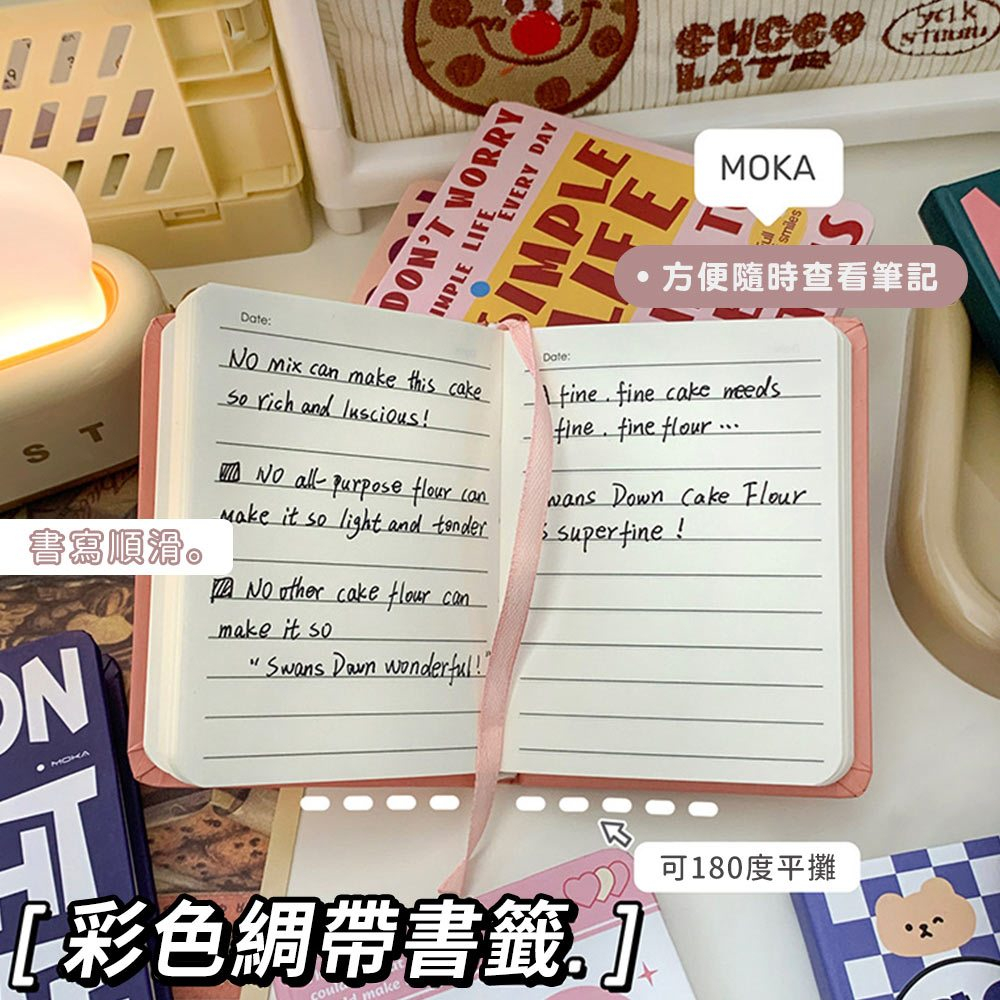 CHOCO
LATE
yolk
studio
MOKA
DON'T WORRY
SIMPLE LIFE
EVERY DAY
SIMPLE
LIFE
full
smiles
• 方便隨時查看筆記
Date:
NO mix can make this cake
so rich and luscious!
NO all-purpose flour can
make it so light and tender
NO other cake flour can
make it so
"Swans Down wonderful!"
Date:
fine. fine cake needs
fine. fine flour...
wans Down Cake Flour
superfine!
ST
書寫順滑。
ON
• MOKA
可180度平攤
[彩色綢帶書籤.]